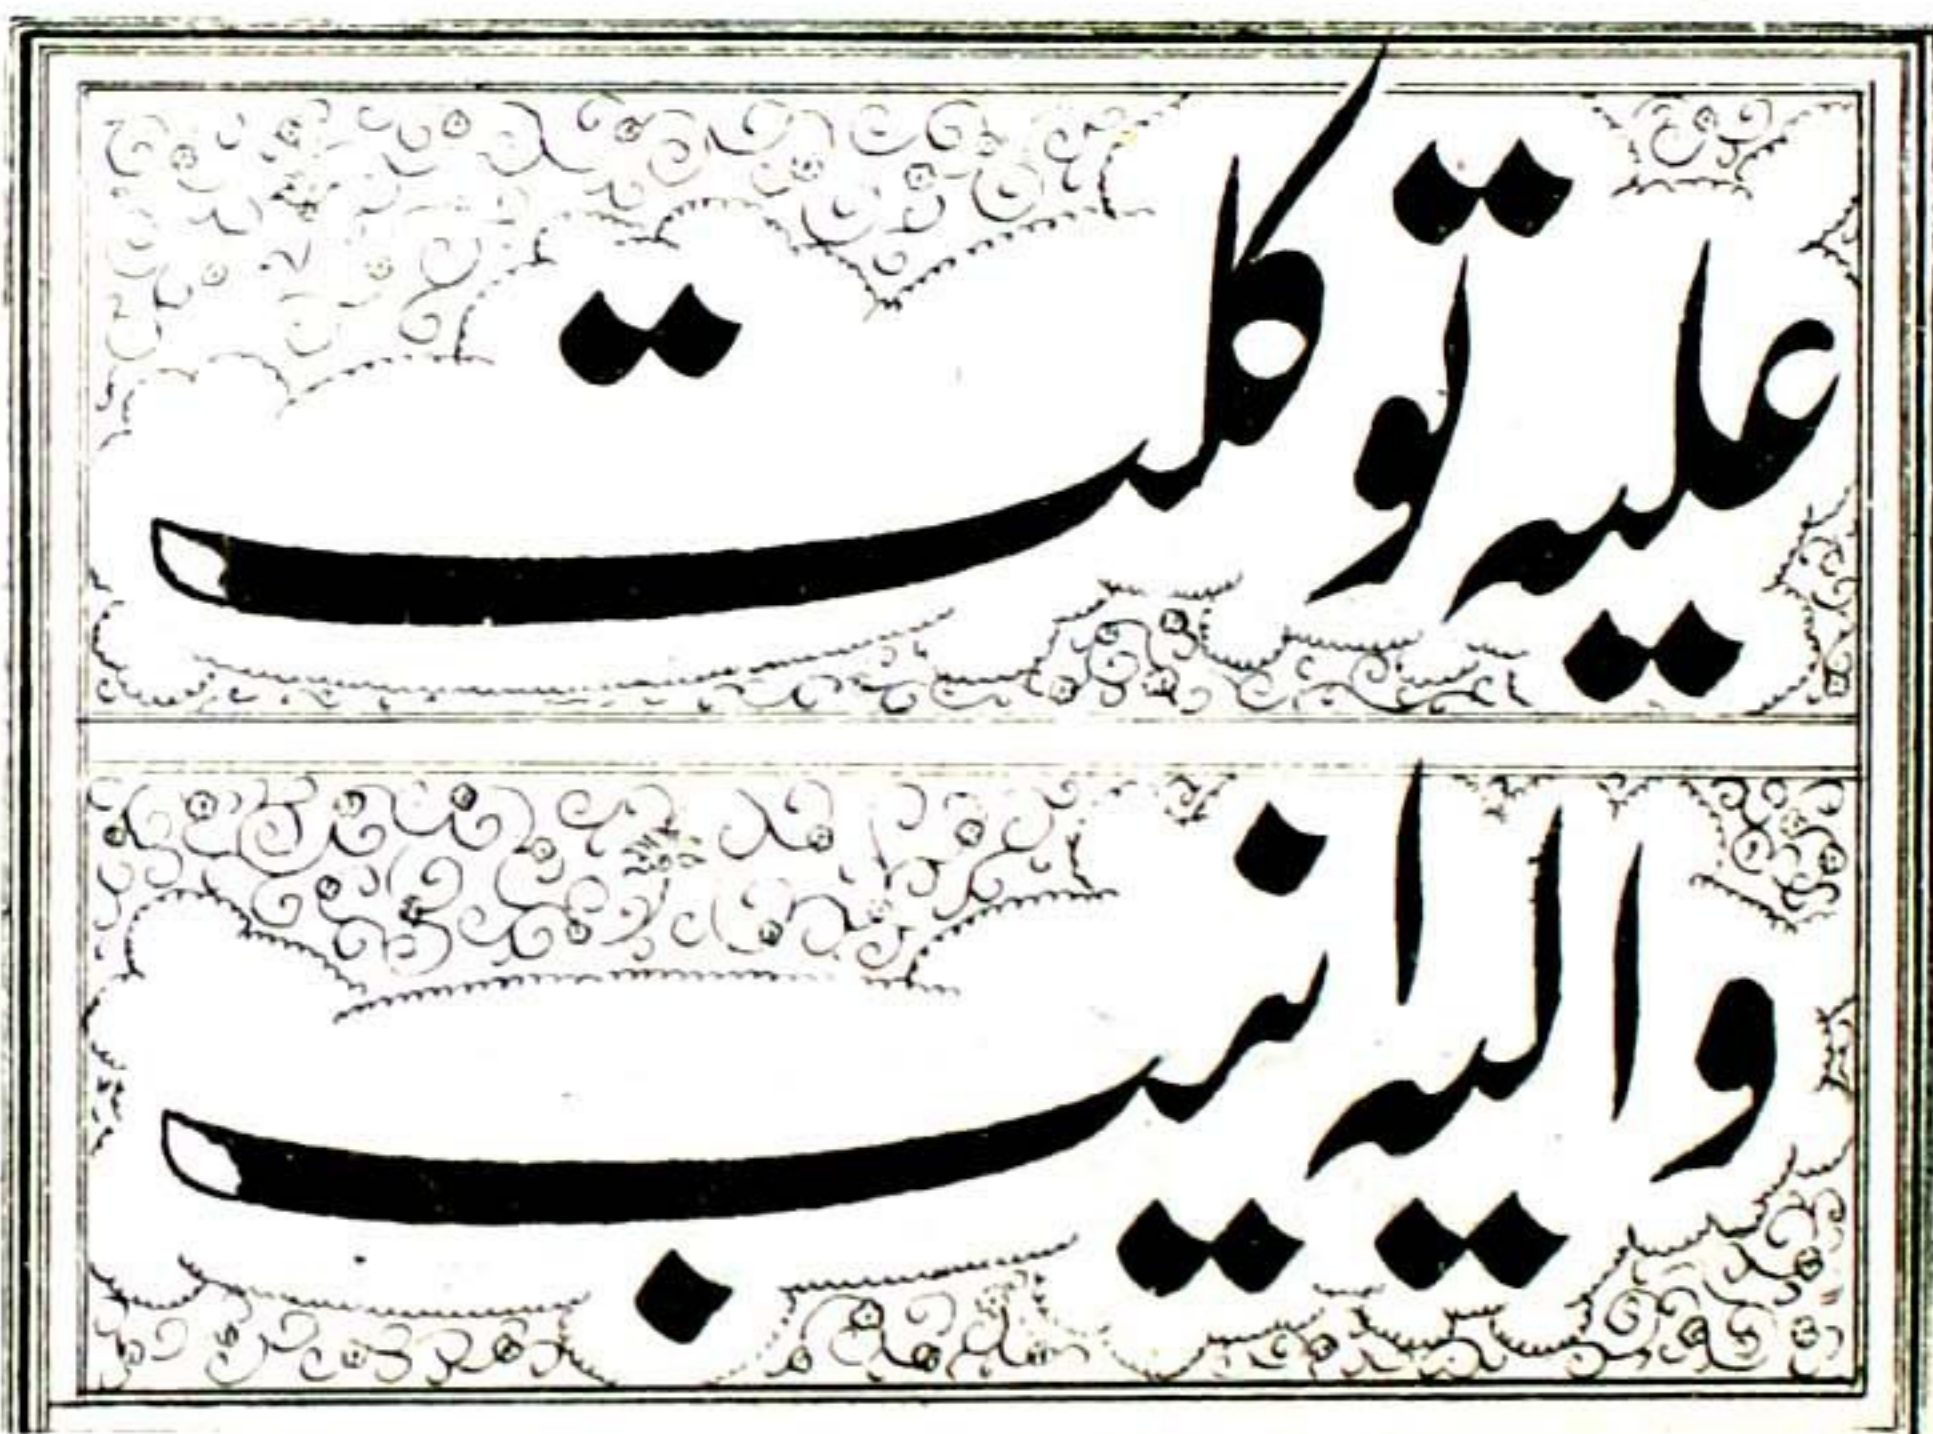 علیه توکلت
والیه انیب